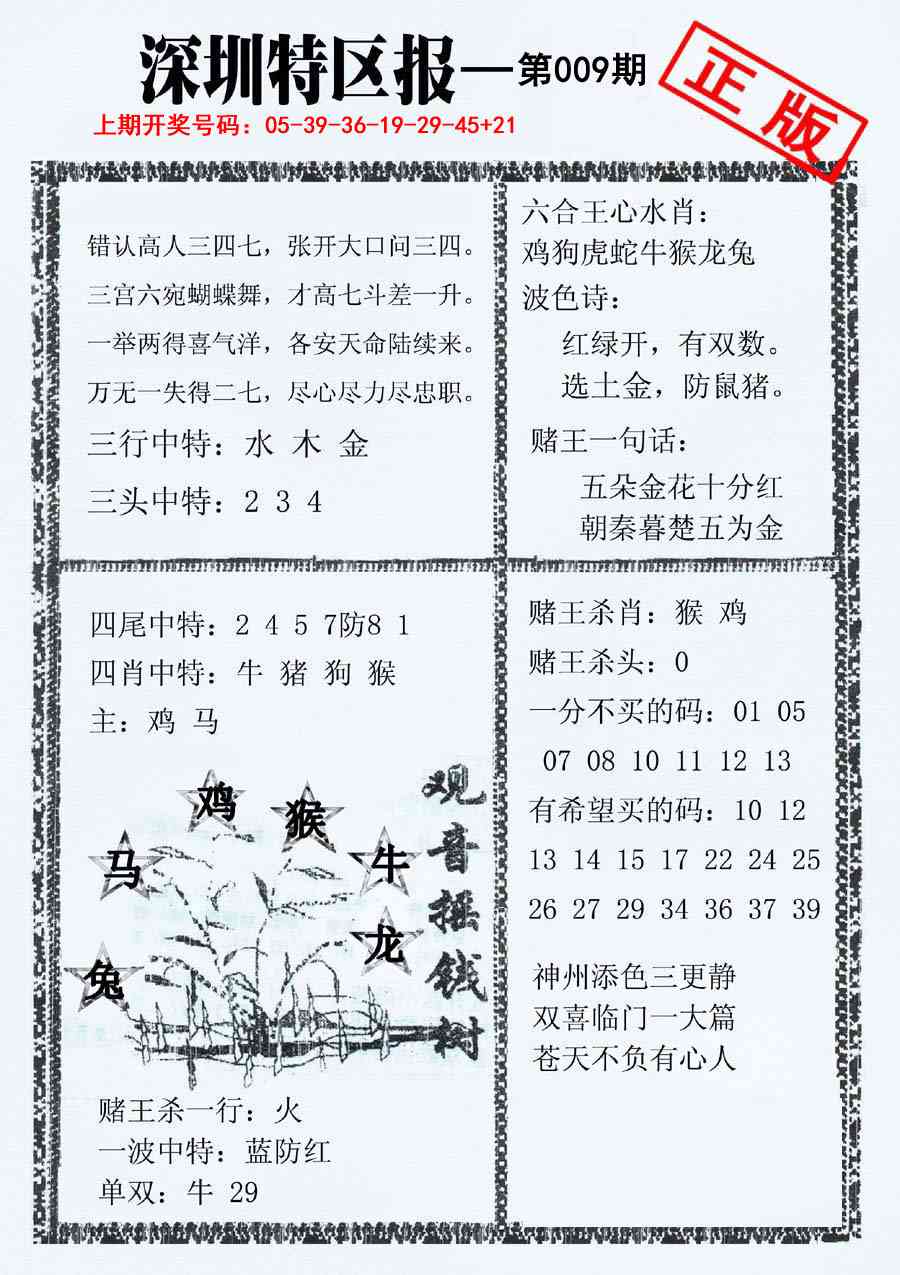 深圳特区报—第009期
正版
上期开奖号码：05-39-36-19-29-45+21
错认高人三四七，张开大口问三四。
三宫六宛蝴蝶舞，才高七斗差一升。
一举两得喜气洋，各安天命陆续来。
万无一失得二七，尽心尽力尽忠职。
三行中特：水 木 金
三头中特：2 3 4
六合王心水肖：
鸡狗虎蛇牛猴龙兔
波色诗：
红绿开，有双数。
选土金，防鼠猪。
赌王一句话：
五朵金花十分红
朝秦暮楚五为金
四尾中特：2 4 5 7防8 1
四肖中特：牛 猪 狗 猴
主：鸡 马
鸡
猴
马
牛
龙
兔
观音摇钱树
赌王杀一行：火
一波中特：蓝防红
单双：牛 29
赌王杀肖：猴 鸡
赌王杀头：0
一分不买的码：01 05
07 08 10 11 12 13
有希望买的码：10 12
13 14 15 17 22 24 25
26 27 29 34 36 37 39
神州添色三更静
双喜临门一大篇
苍天不负有心人